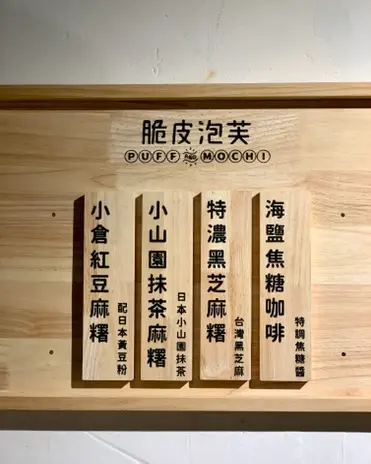 脆皮泡芙
PUFF AND MOCHI
海鹽焦糖咖啡
特調焦糖醬
特濃黑芝麻糬
台灣黑芝麻
小山園抹茶麻糬
日本小山園抹茶
小倉紅豆麻糬
配日本黃豆粉